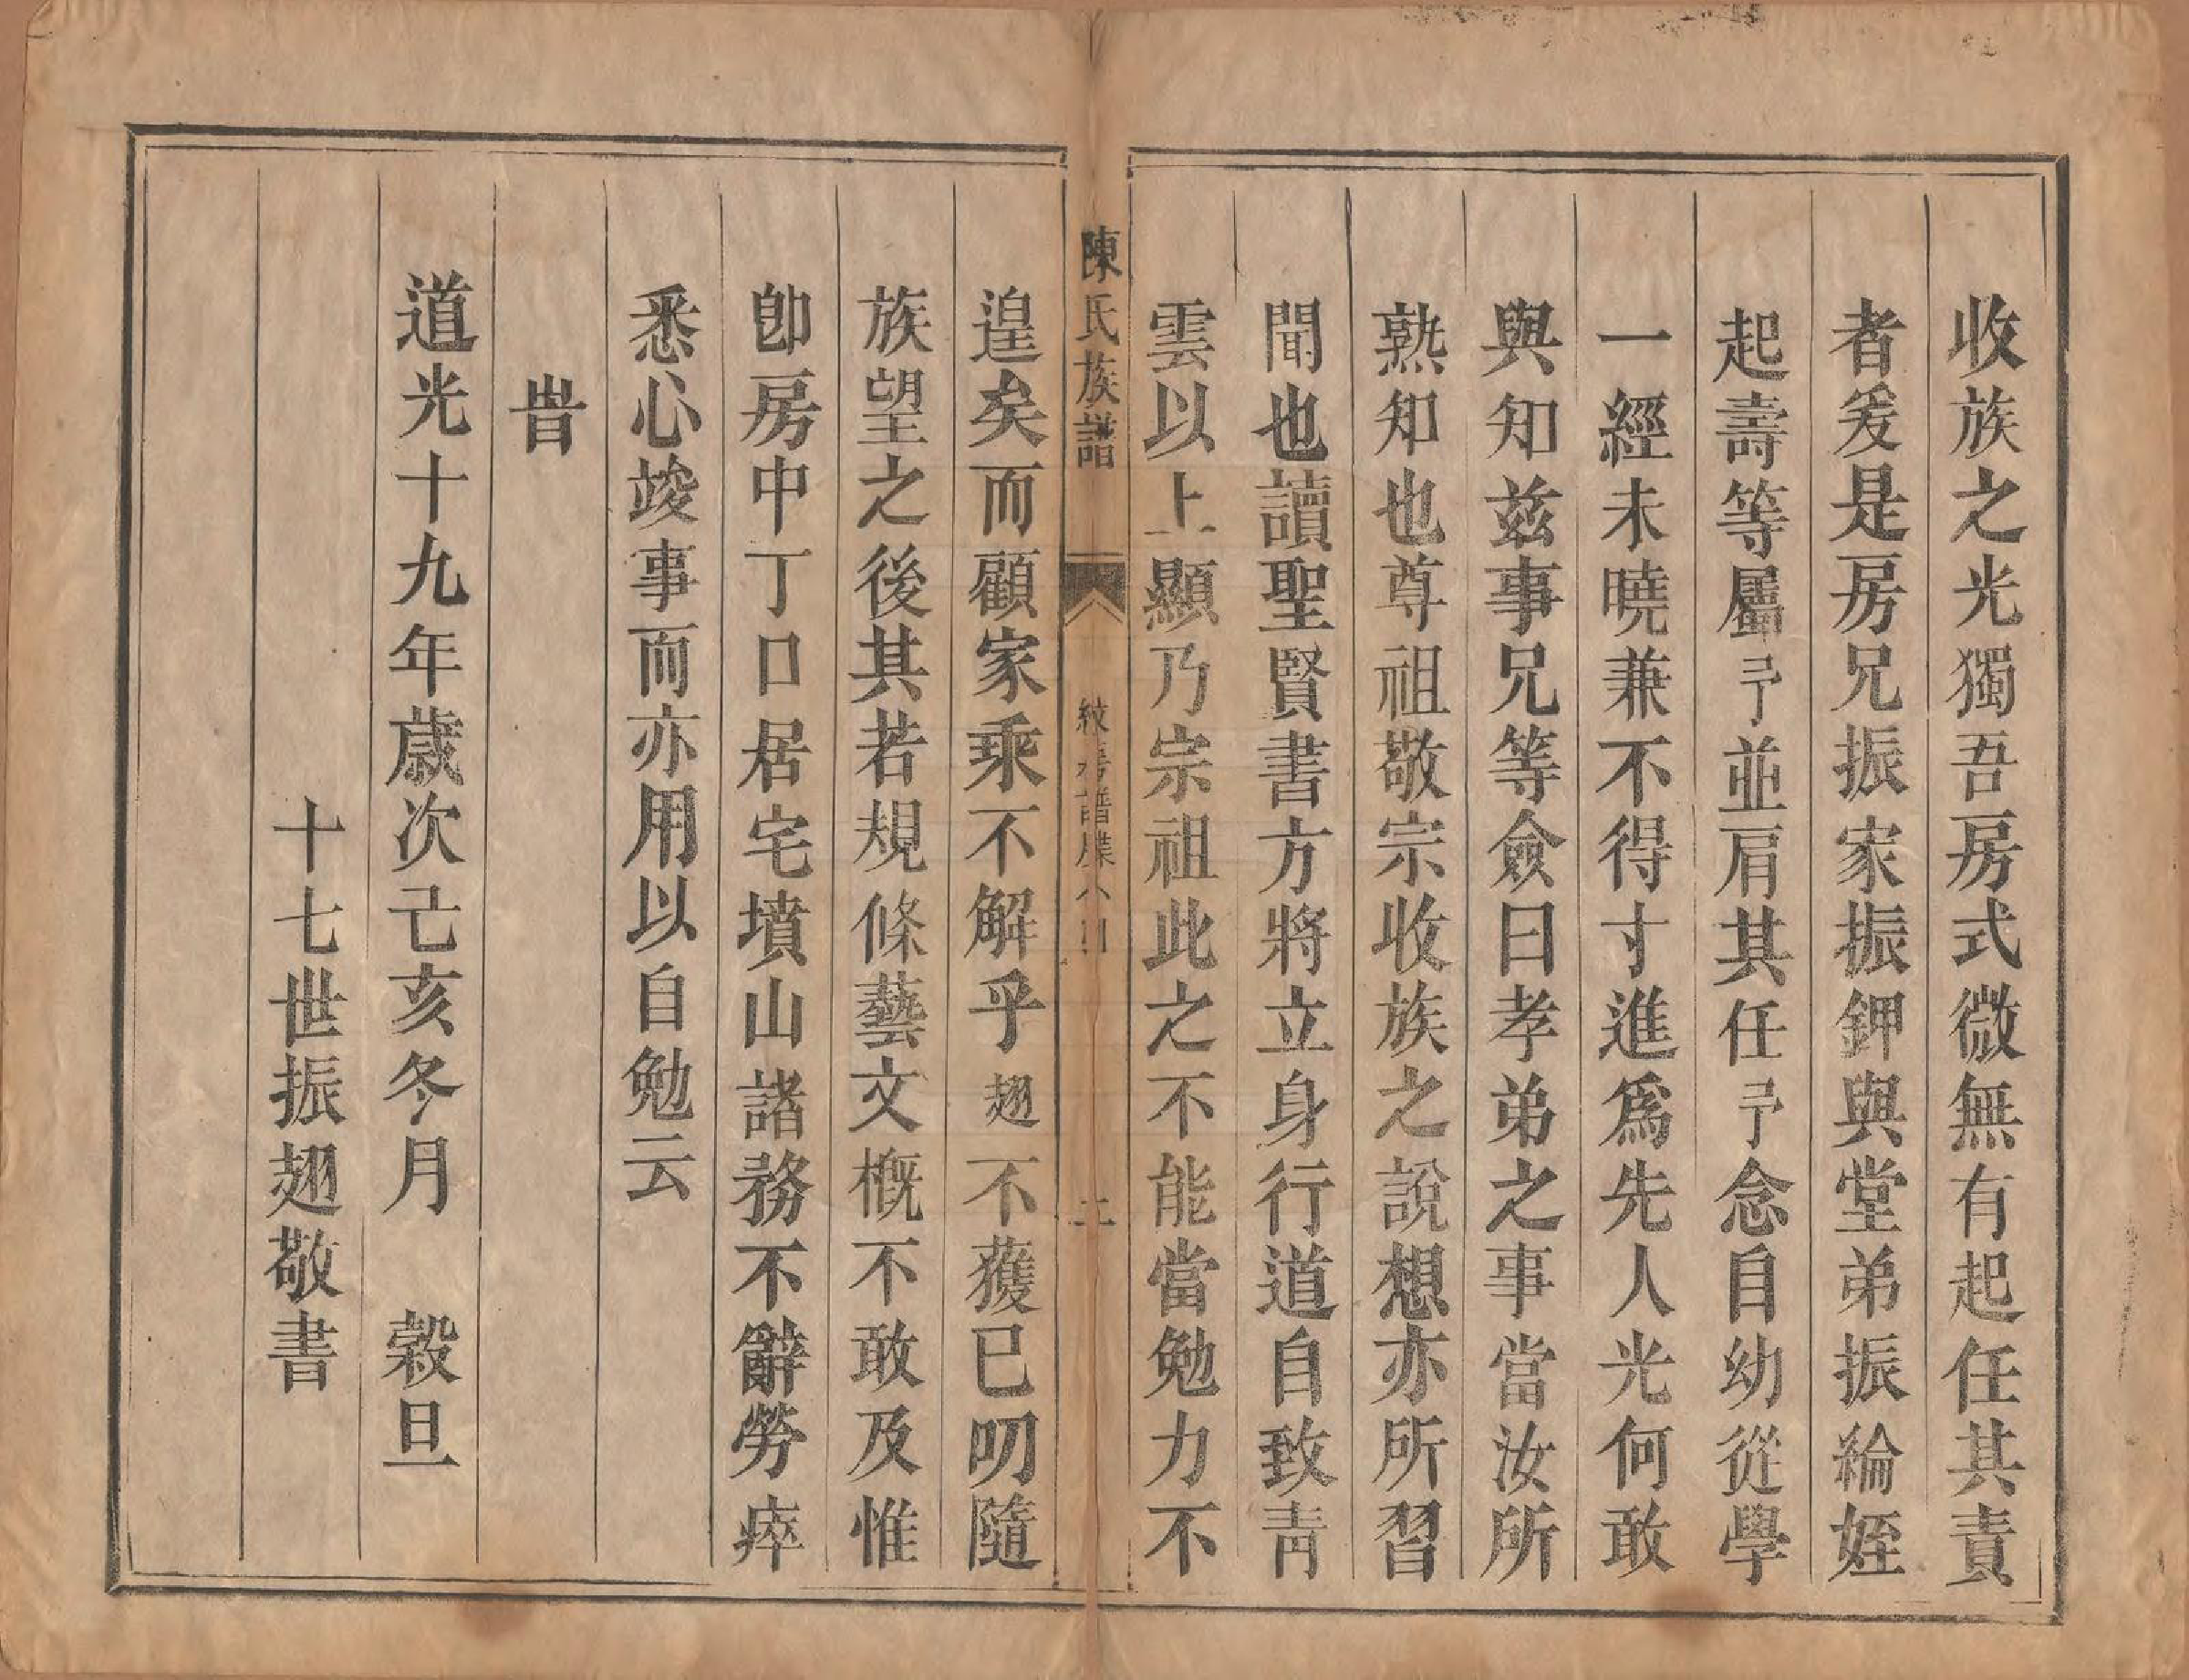 收族之光獨吾房式微無有起任其責
者爰是房兄振家振鉀與堂弟振綸姪
起壽等屬予並肩其任予念自幼從學
一經未曉兼不得寸進爲先人光何敢
與知兹事兄等僉曰孝弟之事當汝所
熟知也尊祖敬宗收族之說想亦所習
聞也讀聖賢書方將立身行道自致靑
雲以上顯乃宗祖此之不能當勉力不
陳氏族譜
二
遑矣而顧家乘不解乎翅不獲已叨隨
族望之後其若規條藝文概不敢及惟
卽房中丁口居宅墳山諸務不辭勞瘁
悉心竣事而亦用以自勉云
旹
道光十九年歲次亥冬月 榖旦
十七世振翅敬書